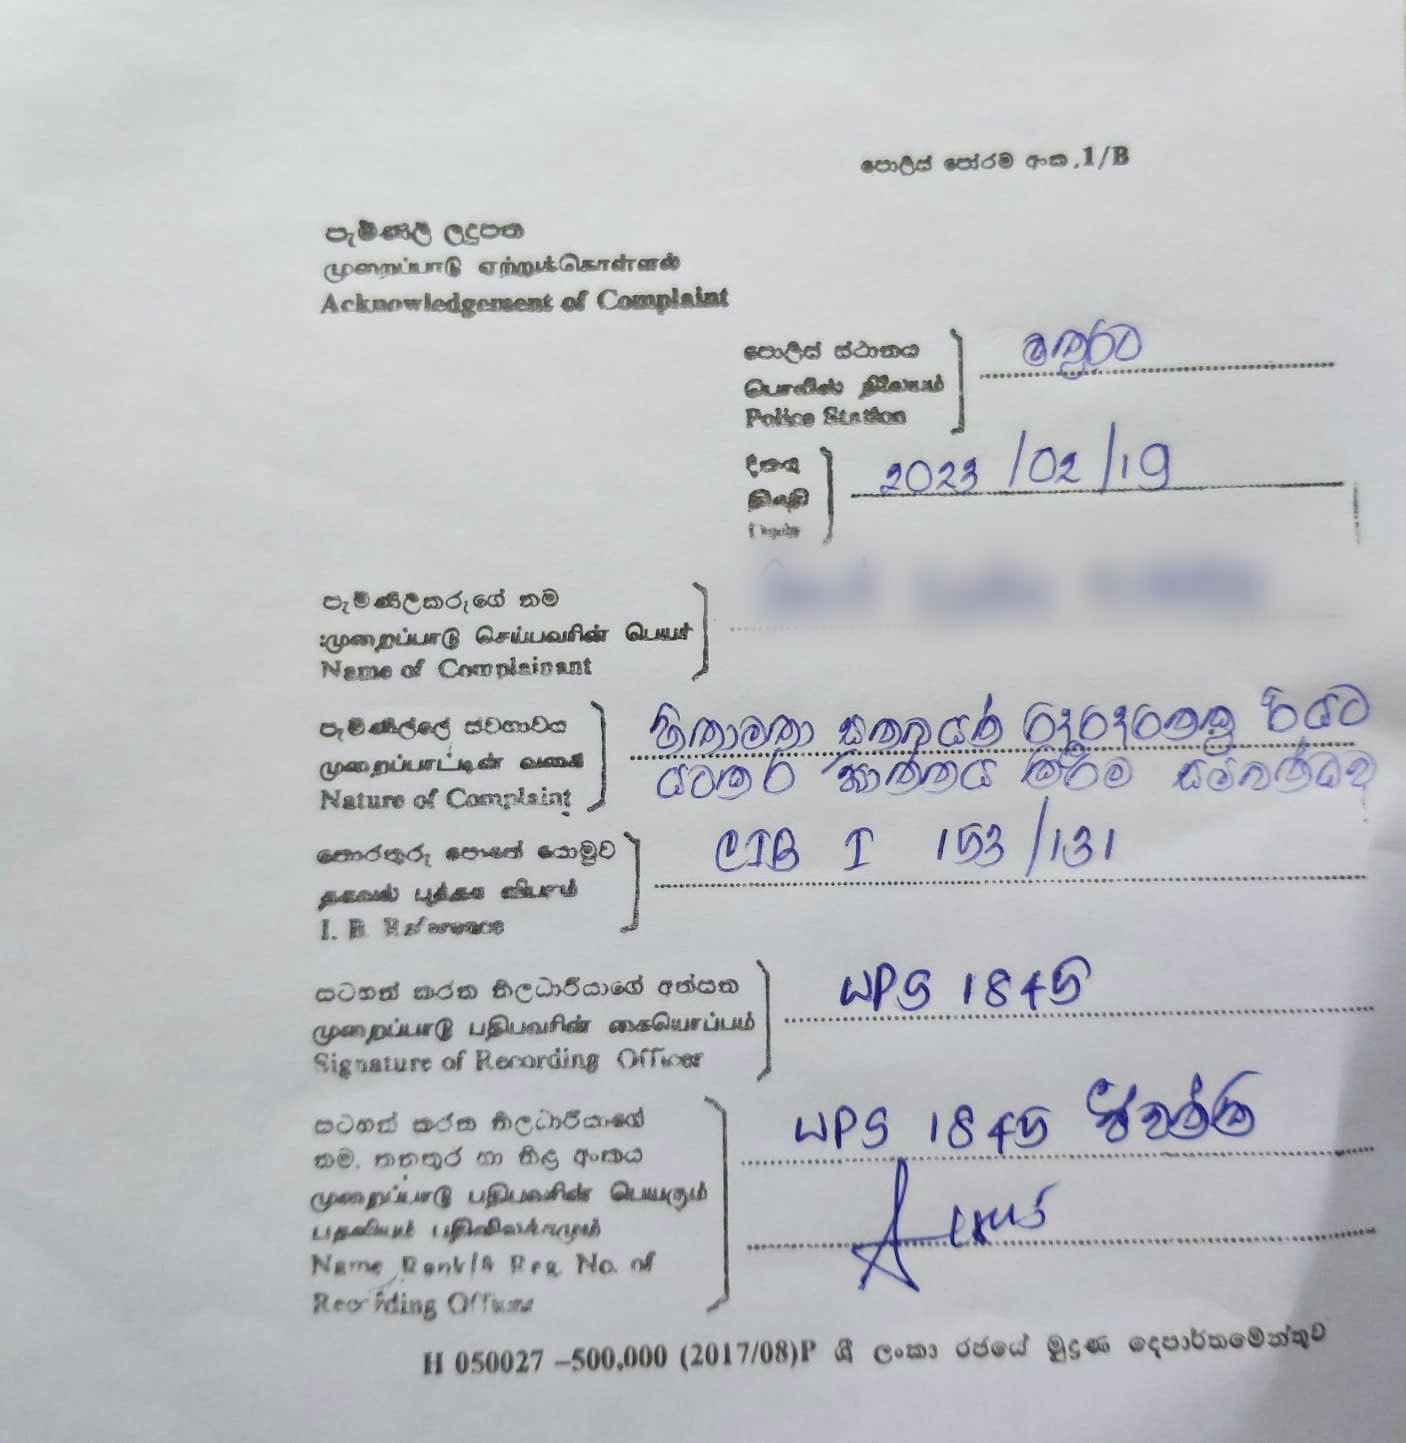 පොලිස් පෝරම අංක .1/B
පැමිණිලි ලදුපත
முறைப்பாடு ஏற்றுக்கொள்ளல்
Acknowledgement of Complaint
පොලිස් ස්ථානය
பொலிஸ் நிலையம்
Police Station
දිනය 2023/02/19
திகதி
Date
පැමිණිලිකරුගේ නම
முறைப்பாடு செய்பவரின் பெயர்
Name of Complainant
පැමිණිල්ලේ ස්වභාවය
முறைப்பாட்டின் வகை
Nature of Complaint
තොරතුරු පොතේ යොමුව CIB I 153/131
தகவல் புத்தக விபரம்
I. B. Reference
සටහන් කරන නිලධාරියාගේ අත්සන WPS 1845
முறைப்பாடு பதிபவரின் கையொப்பம்
Signature of Recording Officer
සටහන් කරන නිලධාරියාගේ
නම, තනතුර හා නිල අංකය WPS 1845
முறைப்பாடு பதிபவரின் பெயரும்
பதவியும் பதிவிலக்கமும்
Name Rank/& Reg. No. of
Recording Officer
H 050027 –500,000 (2017/08)P ශ්‍රී ලංකා රජයේ මුද්‍රණ දෙපාර්තමේන්තුව